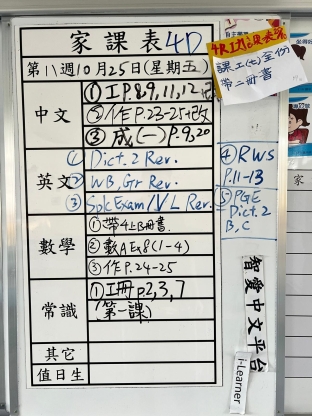 家課表 4D
第11週10月25日(星期五)
中文
① 工P.8,9,11,12
② 作P.23-25改
③ 成(一)P.9,20
英文
① Dict.2 Rev.
② WB,Gr Rev.
③ Spk Exam/V L Rev.
④ RWS
P.11-13
⑤ PGE
Dict.2
B,C
數學
① 帶4上B冊書.
② 數A Ex8(1-4)
③ 作P.24-25
常識
① 工冊P.2,3,7
(第一課)
其它
值日生
課工(七)全份
帶二冊書
智愛中文平台
i-Learner
家